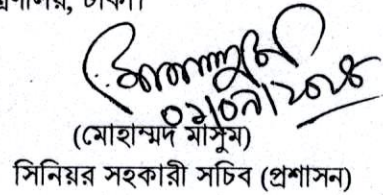 ঢাকা।
০২/০৭/২০২৪
(মোহাম্মদ মাসুম)
সিনিয়র সহকারী সচিব (প্রশাসন)